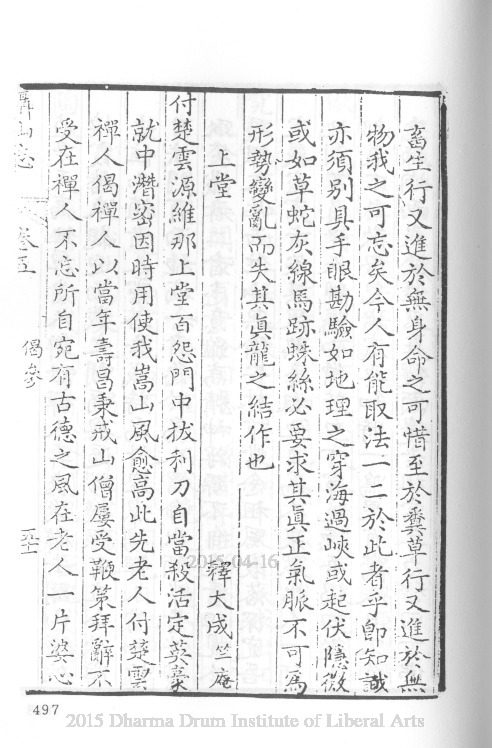 畜生行又進於無身命之可惜至於糞草行又進於無
物我之可忘矣今人有能取法一二於此者乎即知識
亦須別具手眼勘驗如地理之穿海過峽或起伏隱微
或如草蛇灰線馬跡蛛絲必要求其真正氣脈不可為
形勢變亂而失其真龍之結作也
上堂　釋大成竺庵
付楚雲源維那上堂百怨門中拔利刀自當殺活定英豪
就中潛密因時用使我嵩山風愈高此先老人付楚雲
禪人偈禪人以當年壽昌秉戒山僧屢受鞭策拜辭不
受在禪人不忘所自宛有古德之風在老人一片婆心
山志
卷五
偈參
497
2015-04-16
2015 Dharma Drum Institute of Liberal Arts